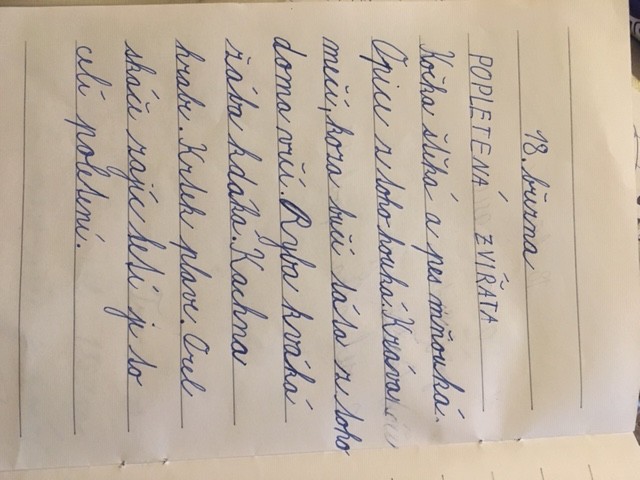 18. března
POPLETENÁ ZVÍŘATA
Kočka štěká a pes mňouká.
Opice z toho kouká. Kráva
mečí, koza bučí táta z toho
doma vrčí. Ryba kváká
žába kdáká. Kachna
hrabe. Krtek plave. Orel
skáče zajíc letí je to
celí popletení.